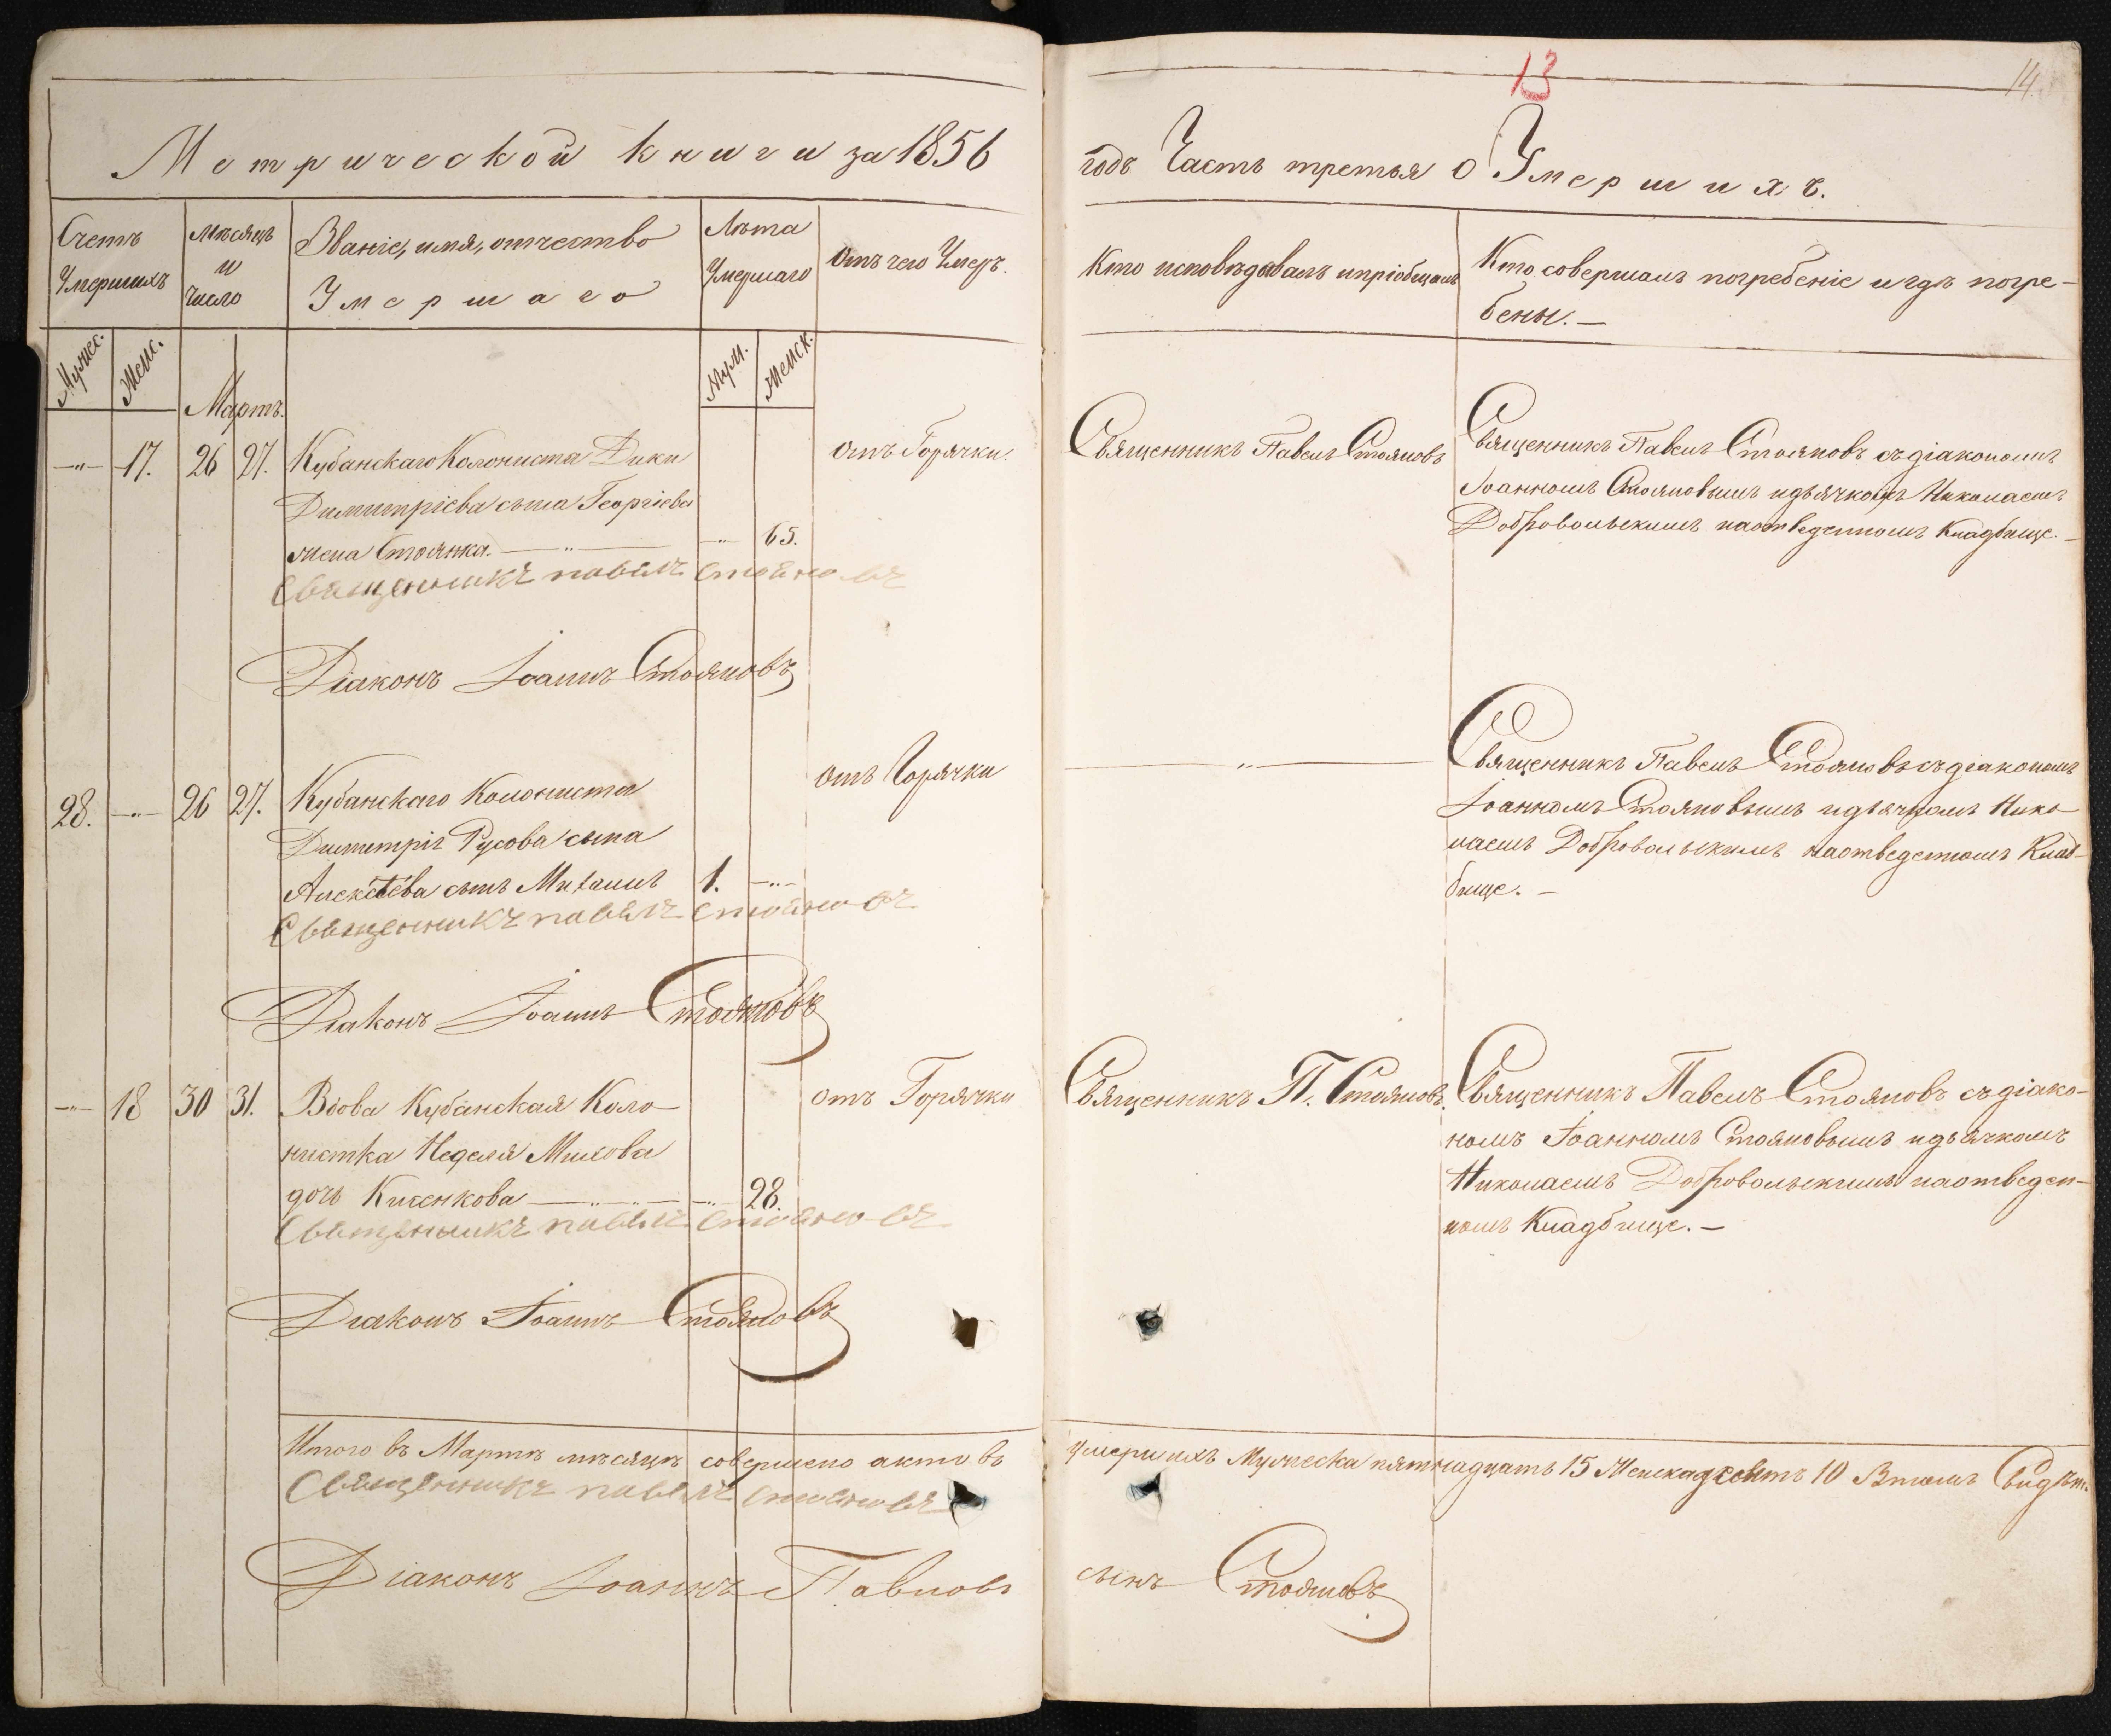 13
14
Метрической книги за 1856
годъ Часть третья о Умершихъ.
Счетъ Умершихъ
Мѣсяцъ и число
Званіе, имя, отчество Умершаго
Лѣта Умершаго
Отъ чего Умеръ.
Кто исповѣдовалъ и пріобщалъ
Кто совершалъ погребеніе и гдѣ погре-
бены. —
Мужес.
Женс.
Муж.
Женск.
Мартъ.
—"— 17. 26 27. Кубанскаго Колониста Дики
Димитріева сына Георгіева
жена Стоянка. —"— —"— 65.
отъ Горячки.
Священникъ Павелъ Стояновъ
Священникъ Павелъ Стояновъ съ діакономъ
Іоанномъ Стояновымъ и дьячкомъ Николаемъ
Добровольскимъ на отведенномъ Кладбище. —
Священникъ павелъ стояновъ
Діаконъ Іоаннъ Стояновъ
28. —"— 26 27. Кубанскаго Колониста
Димитрія Русова сына
Алексѣева сынъ Михаилъ 1. —"—
отъ Горячки
—"—
Священникъ Павелъ Стояновъ съ діакономъ
Іоанномъ Стояновымъ и дьячкомъ Нико-
лаемъ Добровольскимъ на отведенномъ Клад-
бище. —
Священникъ павелъ стояновъ
Діаконъ Іоаннъ Стояновъ
—"— 18 30 31. Вдова Кубанская Коло-
нистка Неделя Милкова
дочь Кисенкова —"— —"— 28.
отъ Горячки
Священникъ П. Стояновъ.
Священникъ Павелъ Стояновъ съ діако-
номъ Іоанномъ Стояновымъ и дьячкомъ
Николаемъ Добровольскимъ на отведен-
номъ Кладбище. —
Священникъ павелъ стояновъ
Діаконъ Іоаннъ Стояновъ
Итого въ Мартѣ мѣсяцѣ совершено актовъ
умершихъ Мужеска пятнадцать 15 Женска десять 10 В томъ Свидѣт.
Священникъ павелъ стояновъ
Діаконъ Іоаннъ Павловъ
сынъ Стояновъ